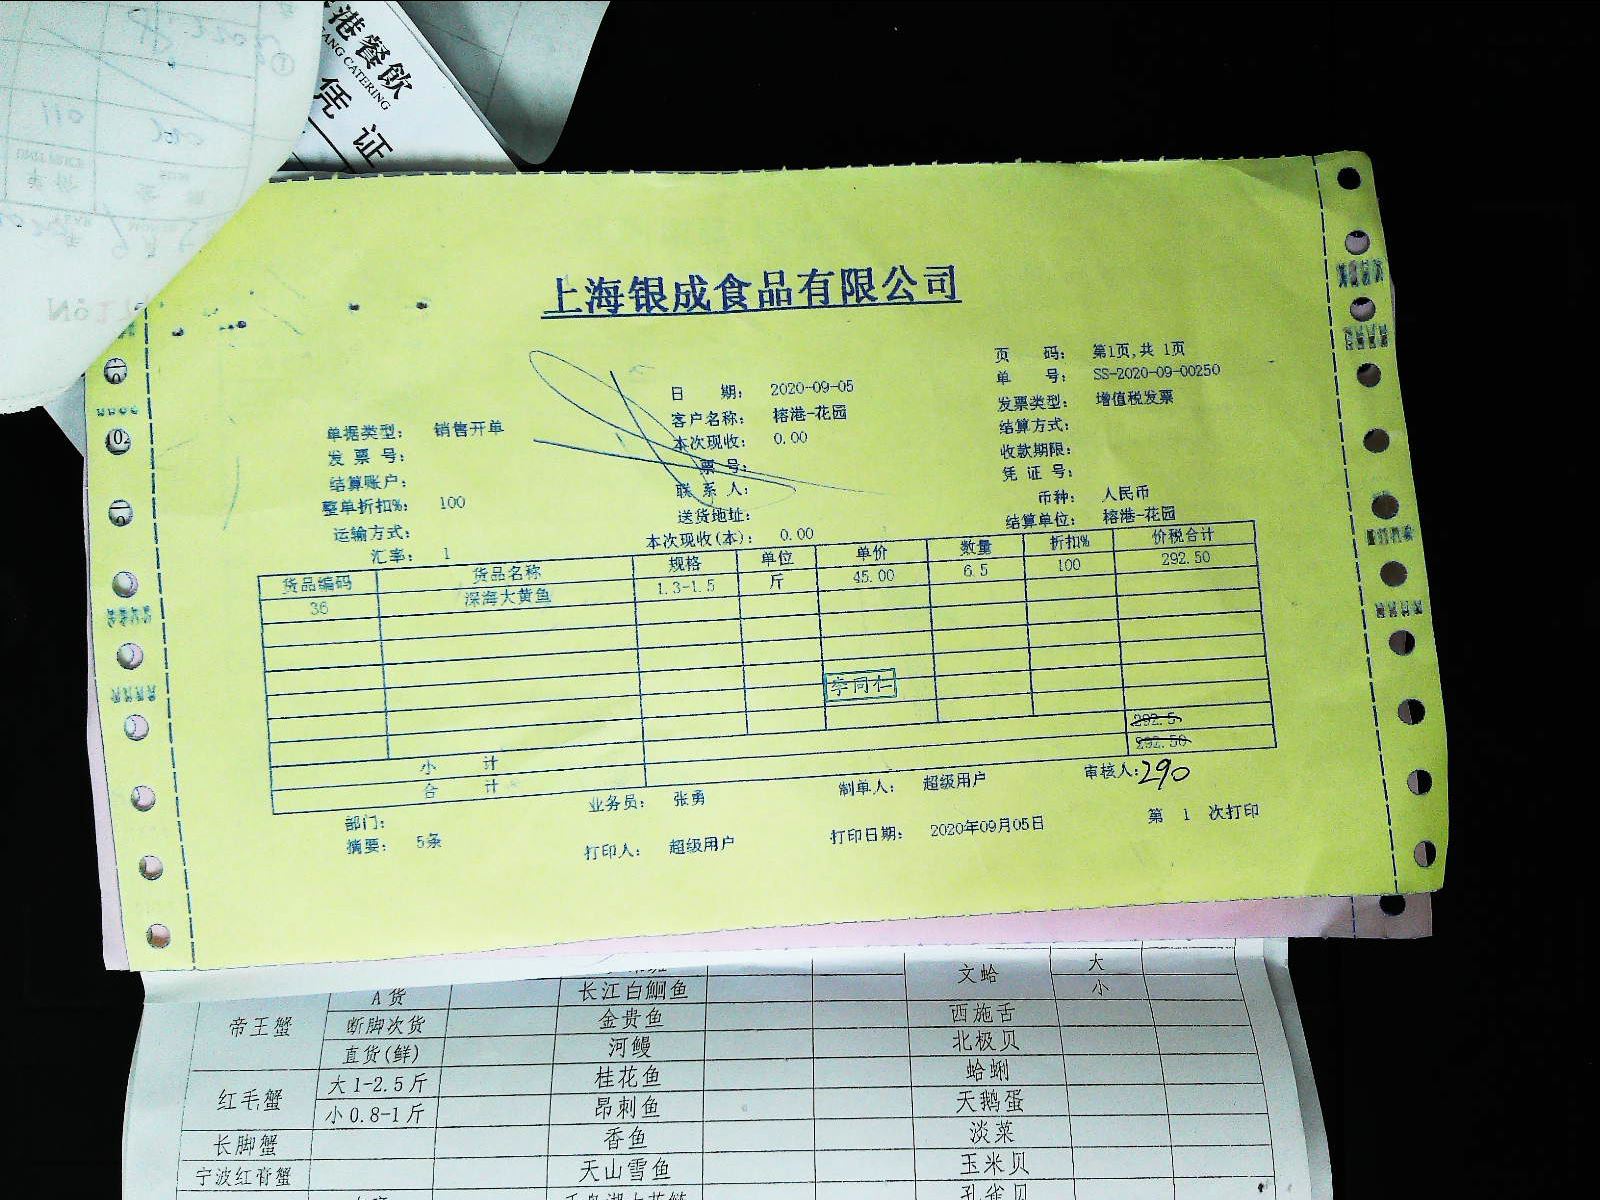 港餐飲
ANG CATERING
凭 证
上海银成食品有限公司
页 码： 第1页,共 1页
单 号： SS-2020-09-00250
日 期： 2020-09-05
发票类型： 增值税发票
客户名称： 榕港-花园
单据类型： 销售开单
结算方式：
本次现收： 0.00
发 票 号：
收款期限：
票 号：
结算账户：
凭 证 号：
联 系 人：
整单折扣%： 100
币种： 人民币
送货地址：
运输方式：
结算单位： 榕港-花园
本次现收(本)： 0.00
汇率： 1
货品编码 货品名称 规格 单位 单价 数量 折扣% 价税合计
36 深海大黄鱼 1.3-1.5 斤 45.00 6.5 100 292.50
李同仁
小 计 292.5
合 计 292.50
290
部门： 业务员： 张勇 制单人： 超级用户 审核人：
摘要： 5条 打印人： 超级用户 打印日期： 2020年09月05日 第 1 次打印
文蛤 大
帝王蟹 A货 长江白鮰鱼 小
断脚次货 金贵鱼 西施舌
直货(鲜) 河鳗 北极贝
红毛蟹 大1-2.5斤 桂花鱼 蛤蜊
小0.8-1斤 昂刺鱼 天鹅蛋
长脚蟹 香鱼 淡菜
宁波红膏蟹 天山雪鱼 玉米贝
孔雀贝